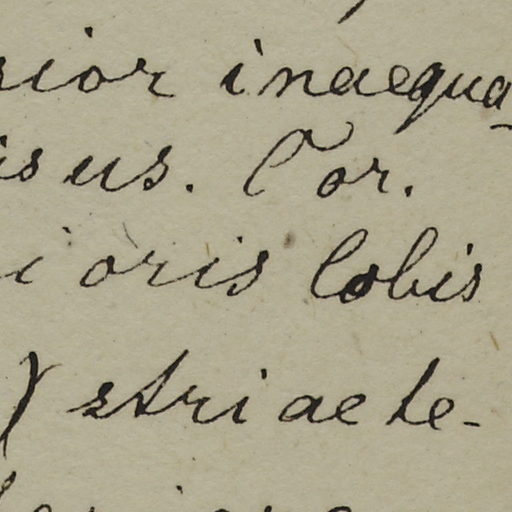 rior inaequa-
isus. Cor.
ioris lobis
) striae te-